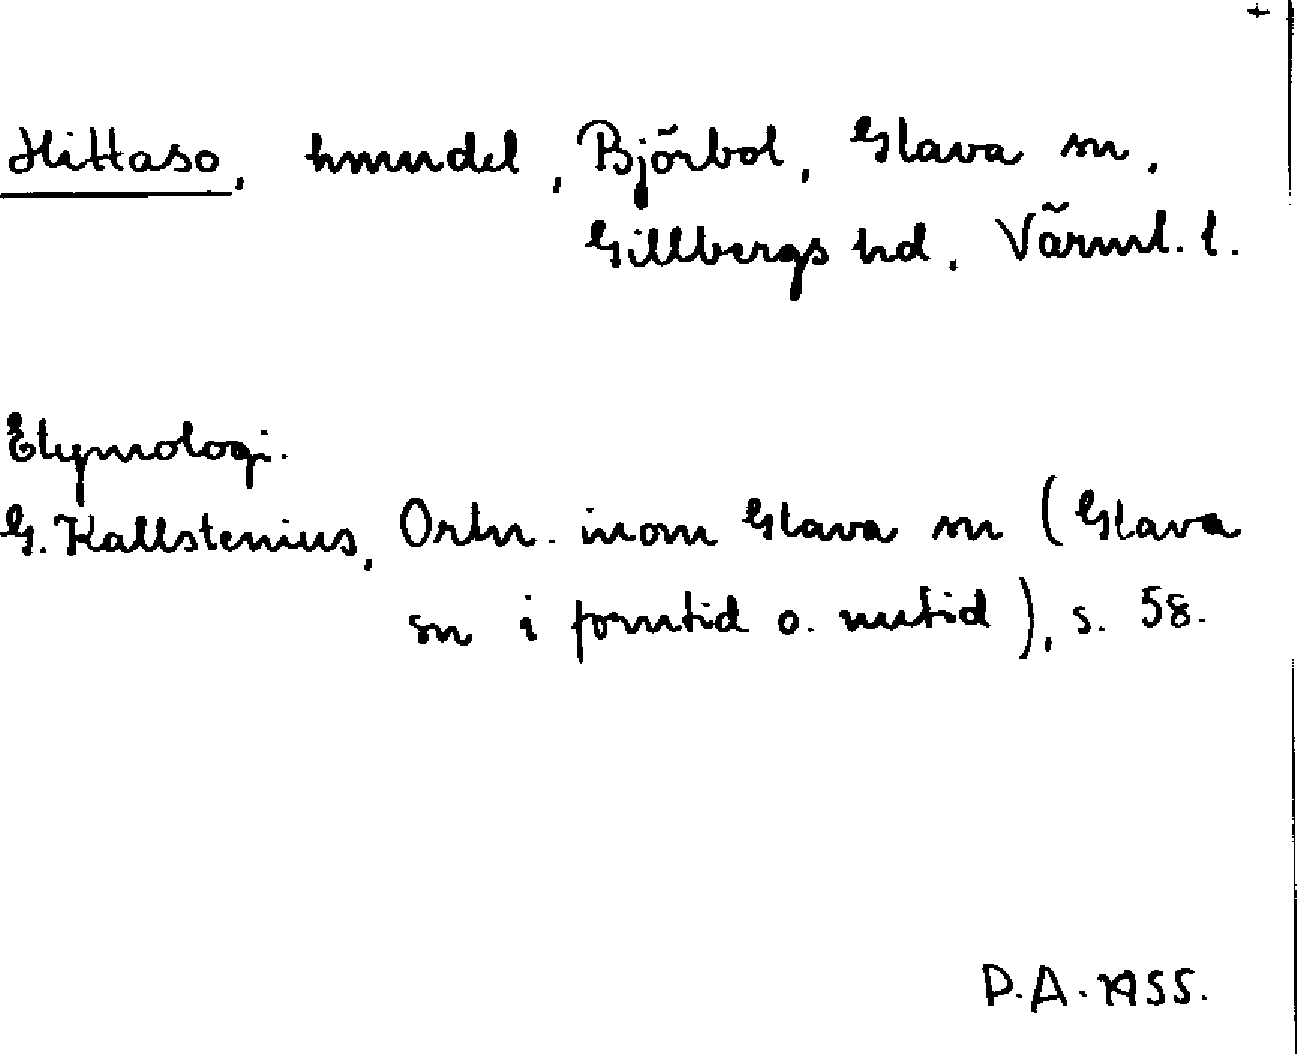 +
Hittaso, hmndel, Björbol, Glava sn,
Gillbergs hd, Värml. l.
Etymologi.
G. Kallstenius, Ortn. inom Glava sn (Glava
sn i forntid o. nutid), s. 58.
P.A. 1955.